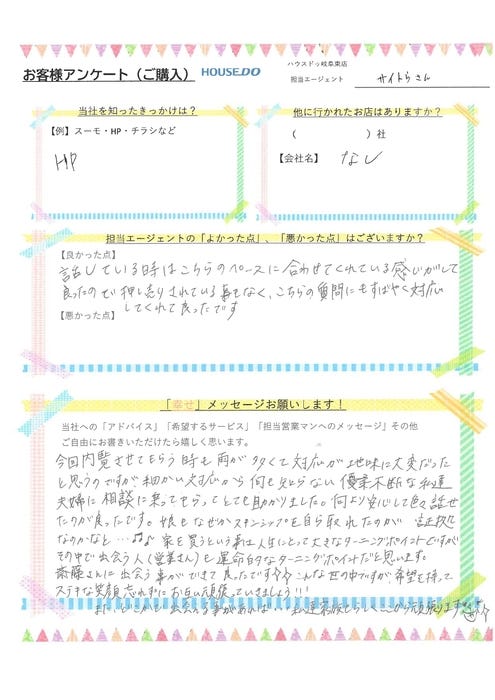 ハウスドゥ岐阜東店
お客様アンケート（ご購入） HOUSEDO
担当エージェント サイトウさん
当社を知ったきっかけは？
【例】スーモ・HP・チラシなど
HP
他に行かれたお店はありますか？
（ ）社
【会社名】 なし
担当エージェントの「よかった点」、「悪かった点」はございますか？
【良かった点】
話している時はこちらのペースに合わせてくれている感じがして
良かったので押し売りされている事もなく、こちらの質問にもすばやく対応
してくれて良ったです
【悪かった点】
「幸せ」メッセージお願いします！
当社への「アドバイス」「希望するサービス」「担当営業マンへのメッセージ」その他
ご自由にお書きいただけたら嬉しく思います。
今回内覧させてもらう時も雨が多くて対応が地味に大変だった
と思うのですが細かい対応から何も知らない優柔不断な私達
夫婦に相談に乗ってもらってとても助かりました。何より安心して色々話せ
たのが良ったです。娘もなぜかスキンシップを自ら取れたのが
なのかなと…♪♪家を買うという事は人生にとって大きなターニングポイントですが
その中で出会う人（営業さん）も運命的なターニングポイントだと思います。
斎藤さんに出会う事ができて良ったです こんな世の中ですが希望を持って
ステキな笑顔忘れずにお互い頑張っていきましょう!!!
またどこかで 事があれば… 私達家族も から頑張ります